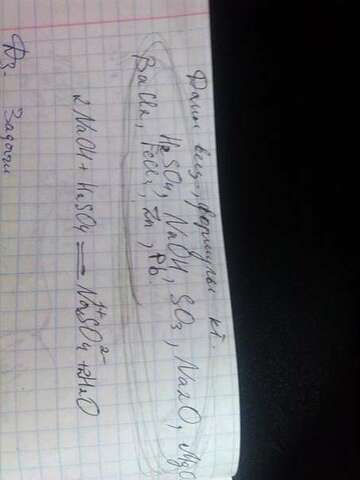 Даны вещ-, формулы кт.
H₂SO₄, NaOH, SO₃, Na₂O, MgO
BaCl₂, FeCl₂, Zn, Pb.
2NaOH + H₂SO₄ = Na₂¹⁺SO₄²⁻ + 2H₂O
Дз. Задачи